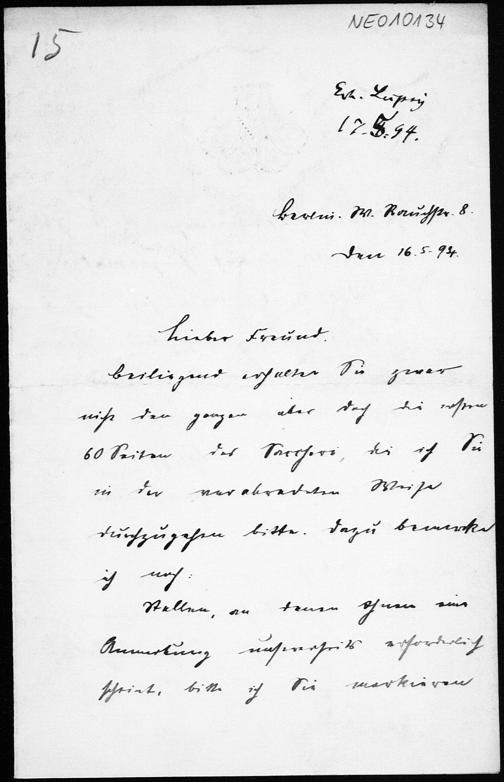 15
NEO10134
Erh. Leipzig
17.5.94.
Berlin. W. Rauchstr. 8.
den 16.5.94.
Lieber Freund.
beiliegend erhalten Sie zwar
nicht den ganzen aber doch die ersten
60 Seiten des Saccheri, die ich Sie
in der verabredeten Weise
durchzugehen bitte. Dazu bemerke
ich noch:
Stellen, an denen Ihnen eine
Anmerkung unsererseits erforderlich
scheint, bitte ich Sie markieren